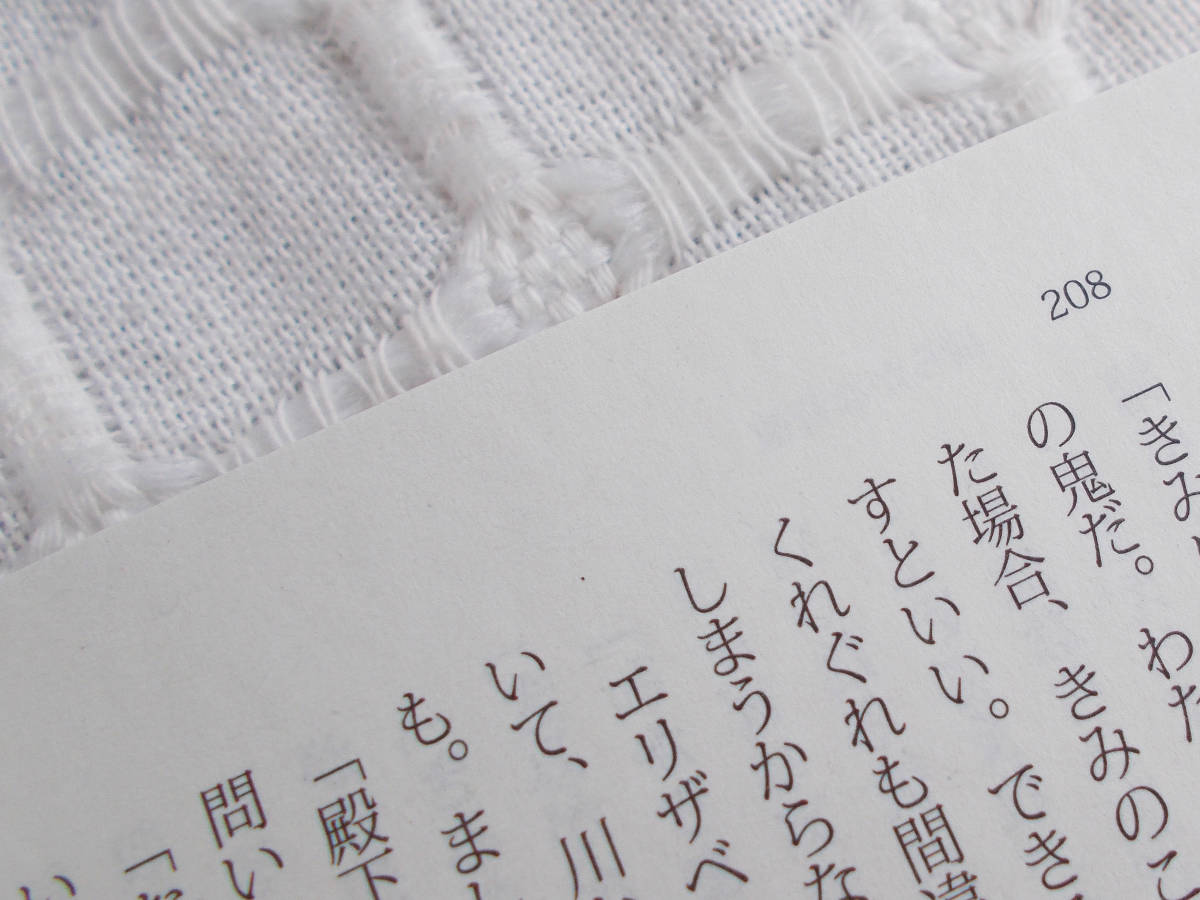 208
「きみ
の鬼だ。わた
た場合、きみのこ
すといい。でき
くれぐれも間違
しまうからな
エリザベ
いて、川
も。ま
「殿下
問い
「
い